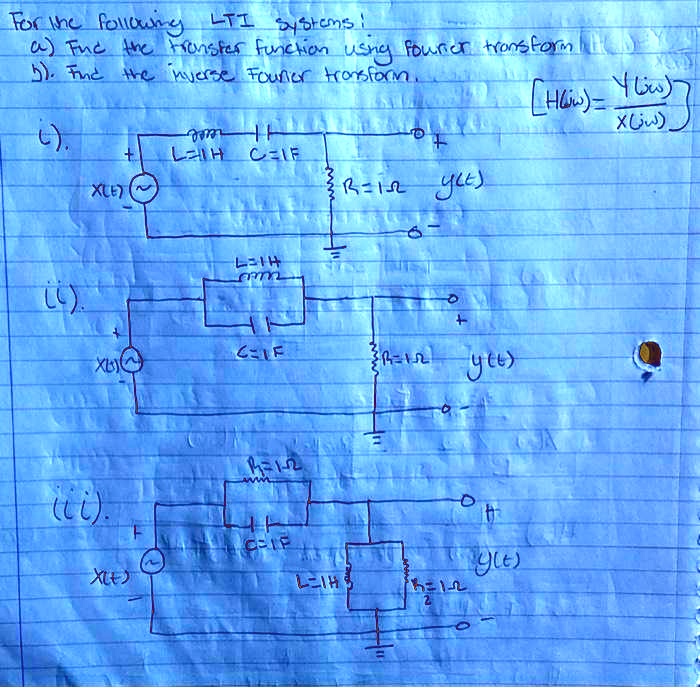 For the following LTI systems:
a) Find the transfer function using fourier transform
b). Find the inverse Fourier transform.
[H(jω)= Y(jω)
X(jω)]
i).
+
L=1H C=1F
+
X(t)
R=1Ω y(t)
-
-
L=1H
ii).
+
+
C=1F
X(t)
R=1Ω y(t)
-
-
R=1Ω
iii).
+
+
C=1F
y(t)
X(t)
L=1H
R=1Ω
2
-
-